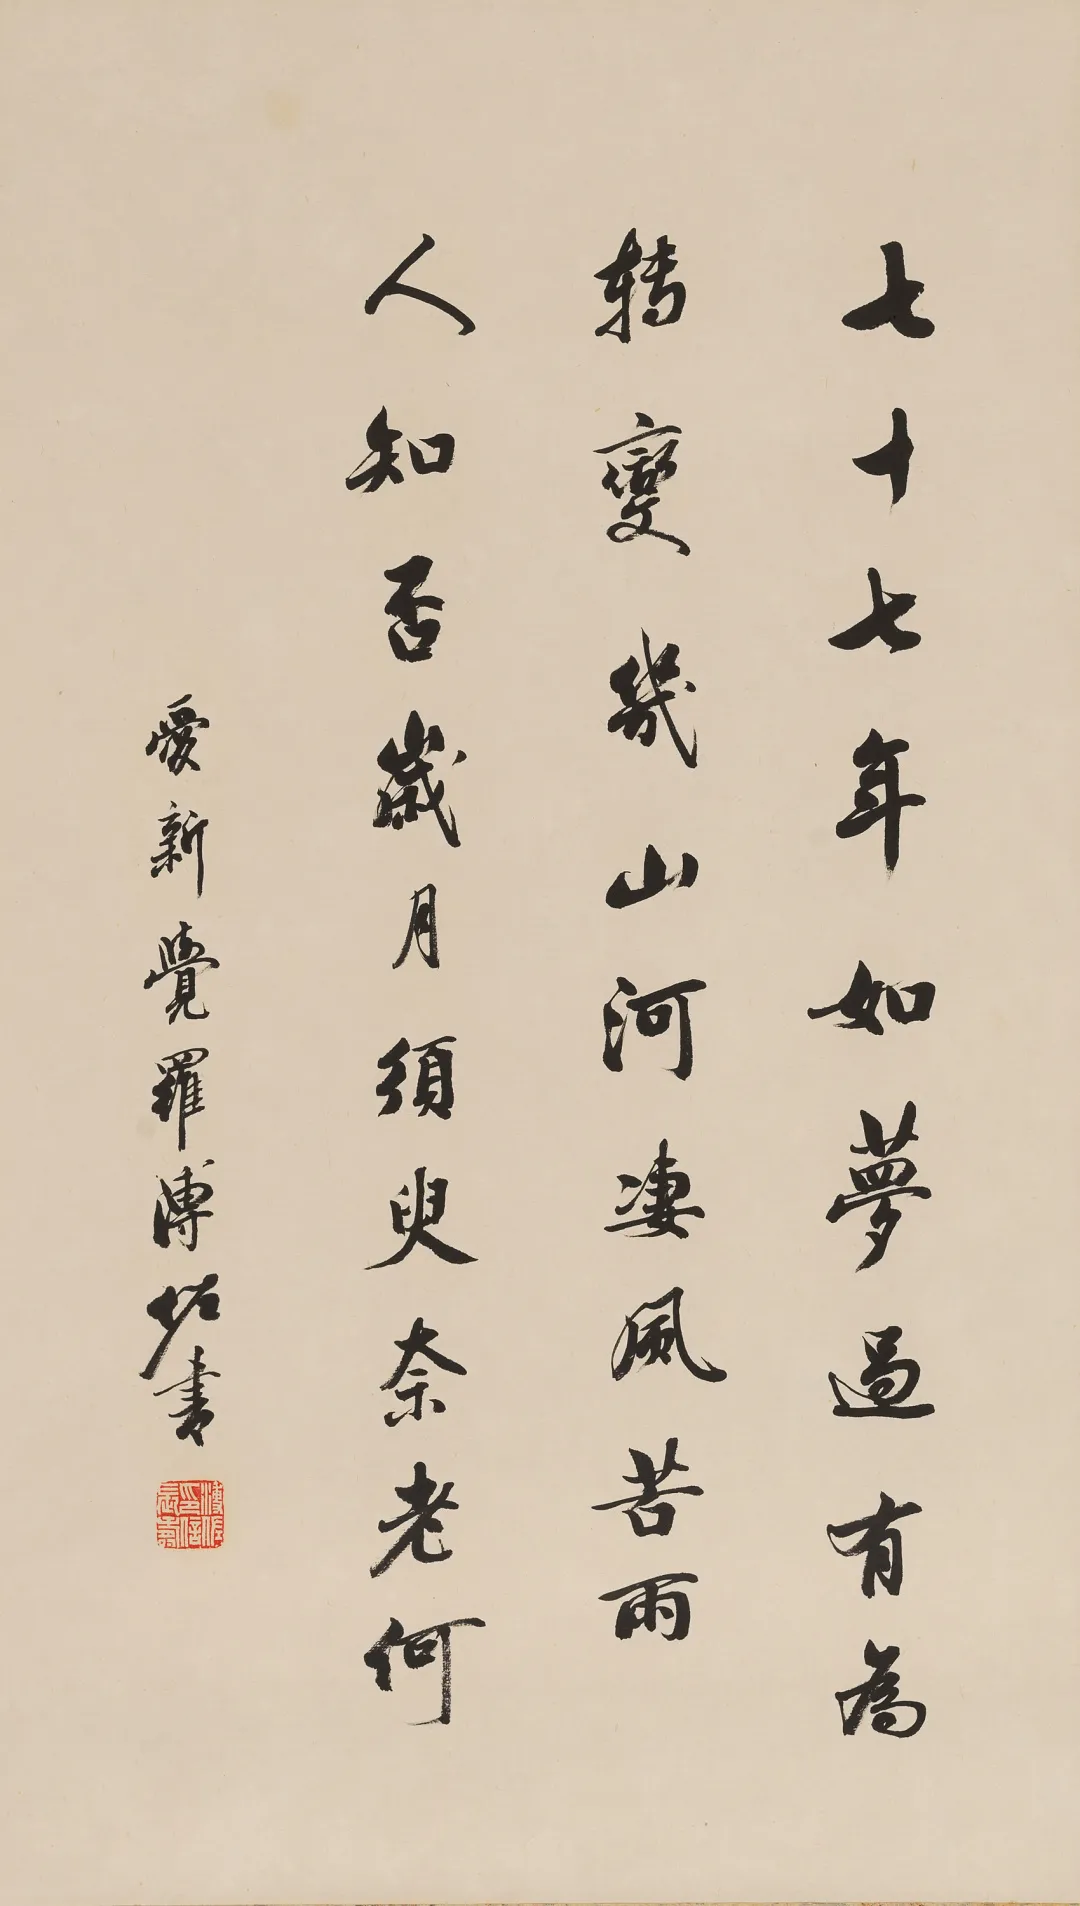 七十七年如夢過有為
轉變幾山河凄風苦雨
人知否歲月須臾奈老何
愛新覺羅溥佐書
溥佐印信長壽